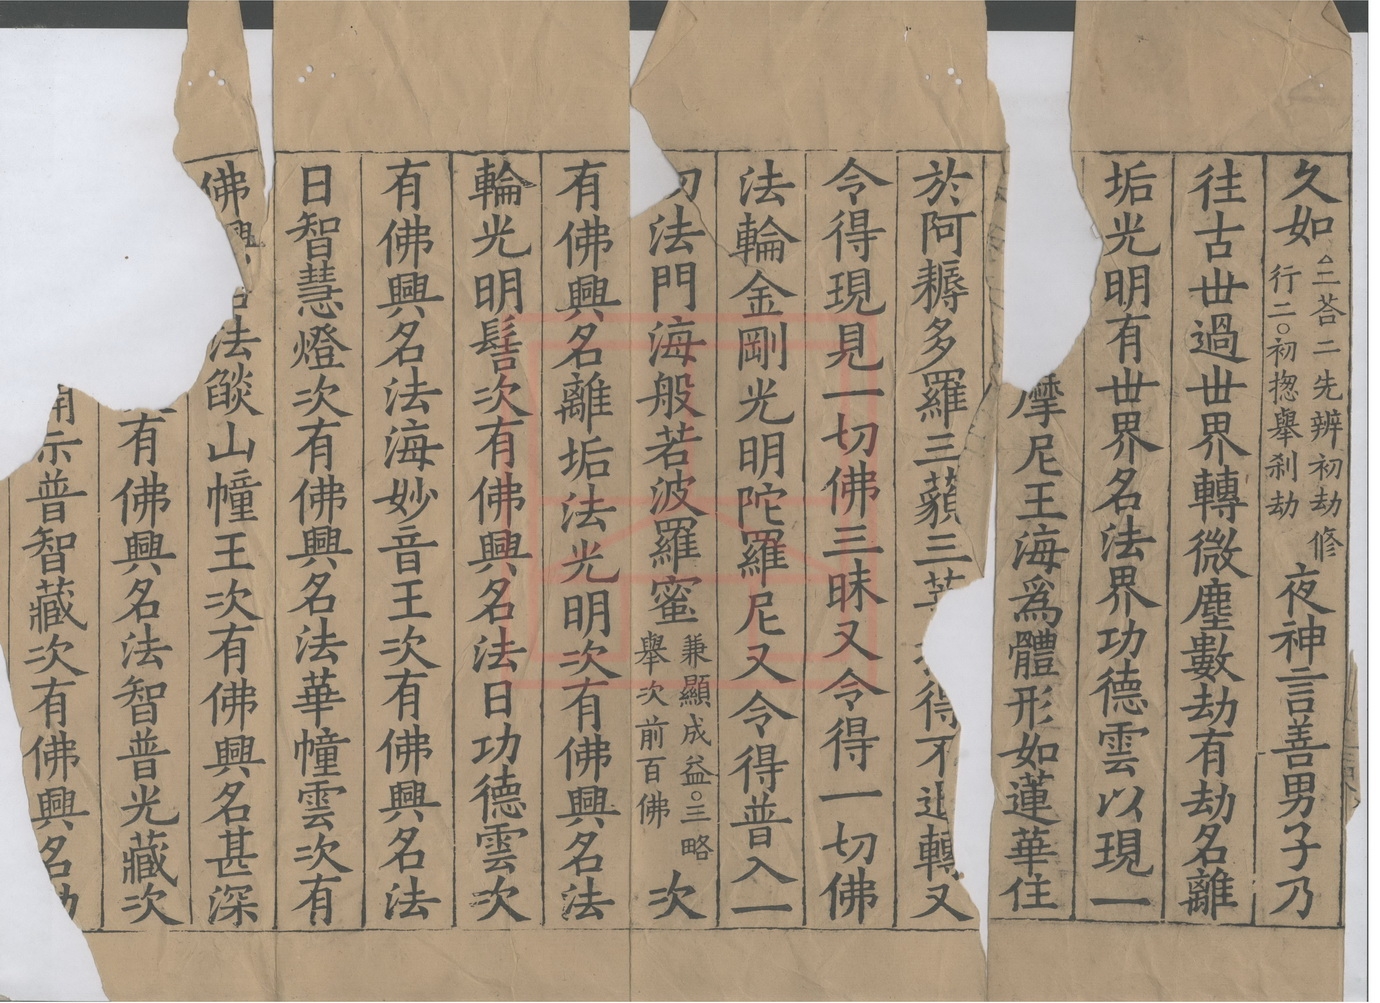 久如△二荅二先辨初劫修行二○初揔舉刹劫夜神言善男子乃
徃古世過世界轉微塵數劫有劫名離
垢光明有世界名法界功德雲以現一
摩尼王海爲體形如蓮華住
於阿耨多羅三藐三得不退轉又
令得現見一切佛三昧又令得一切佛
法輪金剛光明陀羅尼又令得普入一
切法門海般若波羅蜜兼顯成益○三略舉次前百佛次
有佛興名離垢法光明次有佛興名法
輪光明髻次有佛興名法日功德雲次
有佛興名法海妙音王次有佛興名法
日智慧燈次有佛興名法華幢雲次有
佛興名法燄山幢王次有佛興名甚深
有佛興名法智普光藏次
示普智藏次有佛興名